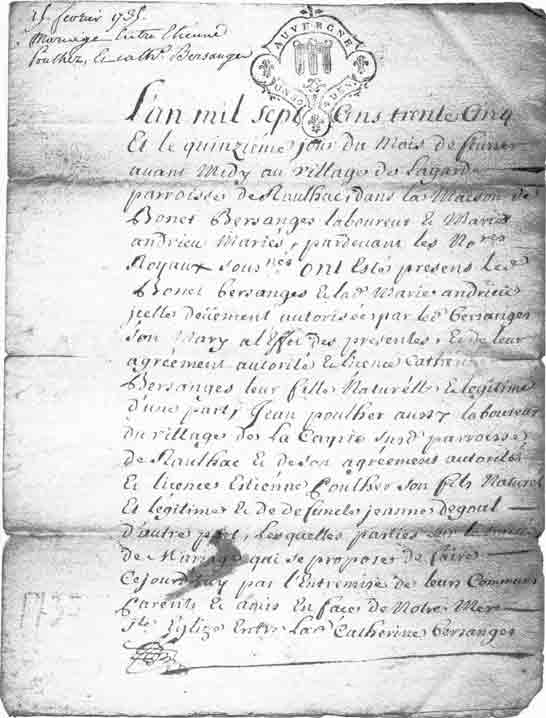 15. fevrier 1735.
Mariage Entre Etienne
Poulher, & cath.e Bersanges
AUVERGNE
L'an mil sept Cens trente Cinq
Et le quinziéme jour du Mois de fevrier
avant Midy au village de Lagarde
parroisse de Raulhac, dans la Maison de
Bonet Bersanges laboureur & Marie
andrieu Mariés, pardevant les No.res
Royaux sous.nés ONt Estés presens led.
Bonet bersanges & lad. Marie andrieu
jcelle deüement autorisée par led. bersanges
son Mary a l'Effet des presentes, & de leur
agréement autorité & licence Catherine
Bersanges leur fille Naturélle & legitime
d'une part, Jean poulher aussy laboureur
du village de la Cayrie susd. parroisse
de Raulhac & de son agréement autorité
& licence Estienne Poulher son fils Naturel
Et légitime & de defuncte jeanne degoul
d'autre part, Lesquelles parties sur le
de Mariage qui se propose de faire
Cejourdhuy par l'Entremise de leurs Communs
Parents & amis En face de Notre Mere
S.te Eglize Entre lad. Catherine bersanges